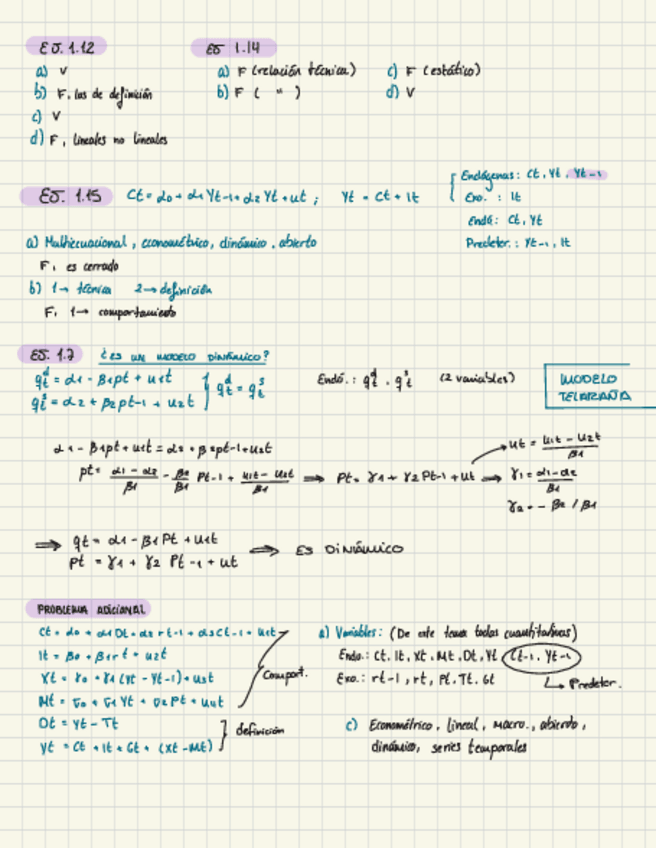 EJ. 1.12
a) V
b) F, las de definición
c) V
d) F, lineales no lineales
EJ 1.14
a) F (relación técnica)
b) F ( " )
c) F (estático)
d) V
EJ. 1.15 Ct = α0 + α1 Yt-1 + α2 Yt + ut ; Yt = Ct + It
Endógenas: Ct, Yt, Yt-1
Exo. : It
Endó: Ct, Yt
Predeter.: Yt-1, It
a) Multiecuacional, econométrico, dinámico, abierto
F, es cerrado
b) 1→ técnica 2→ definición
F, 1→ comportamiento
EJ. 1.7 ¿ES UN MODELO DINÁMICO?
qtd = α1 - β1pt + u1t
qts = α2 + β2pt-1 + u2t
qtd = qts
Endó.: qtd, qts (2 variables)
MODELO
TELARAÑA
α1 - β1pt + u1t = α2 + β2pt-1 + u2t
pt = α1 - α2 / β1 - β2 / β1 Pt-1 + u1t - u2t / β1 ⟹ Pt = γ1 + γ2 Pt-1 + ut
ut = u1t - u2t / β1
γ1 = α1 - α2 / β1
γ2 = - β2 / β1
⟹ qt = α1 - β1 Pt + u1t
pt = γ1 + γ2 Pt-1 + ut
⟹ ES DINÁMICO
PROBLEMA ADICIONAL
Ct = α0 + α1 Dt + α2 rt-1 + α3 Ct-1 + u1t
It = β0 + β1 rt + u2t
Xt = γ0 + γ1 (Yt - Yt-1) + u3t
Mt = σ0 + σ1 Yt + σ2 Pt + u4t
Comport.
Dt = Yt - Tt
Yt = Ct + It + Gt + (Xt - Mt)
definición
a) Variables: (De este tema todas cuantitativas)
Endo.: Ct, It, Xt, Mt, Dt, Yt Ct-1, Yt-1
Exo.: rt-1, rt, Pt, Tt, Gt
↳ Predeter.
c) Econométrico, lineal, macro., abierto,
dinámico, series temporales